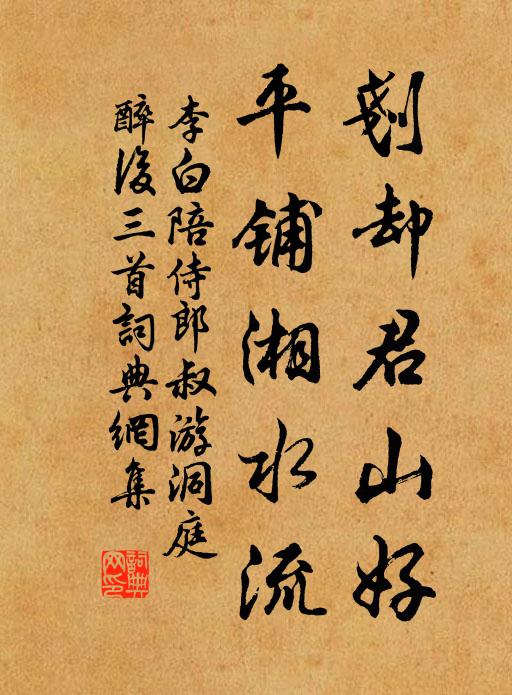 剗却君山好
平鋪湘水流
李白陪侍郎叔游洞庭
醉後三首詞典網集
詞典網印